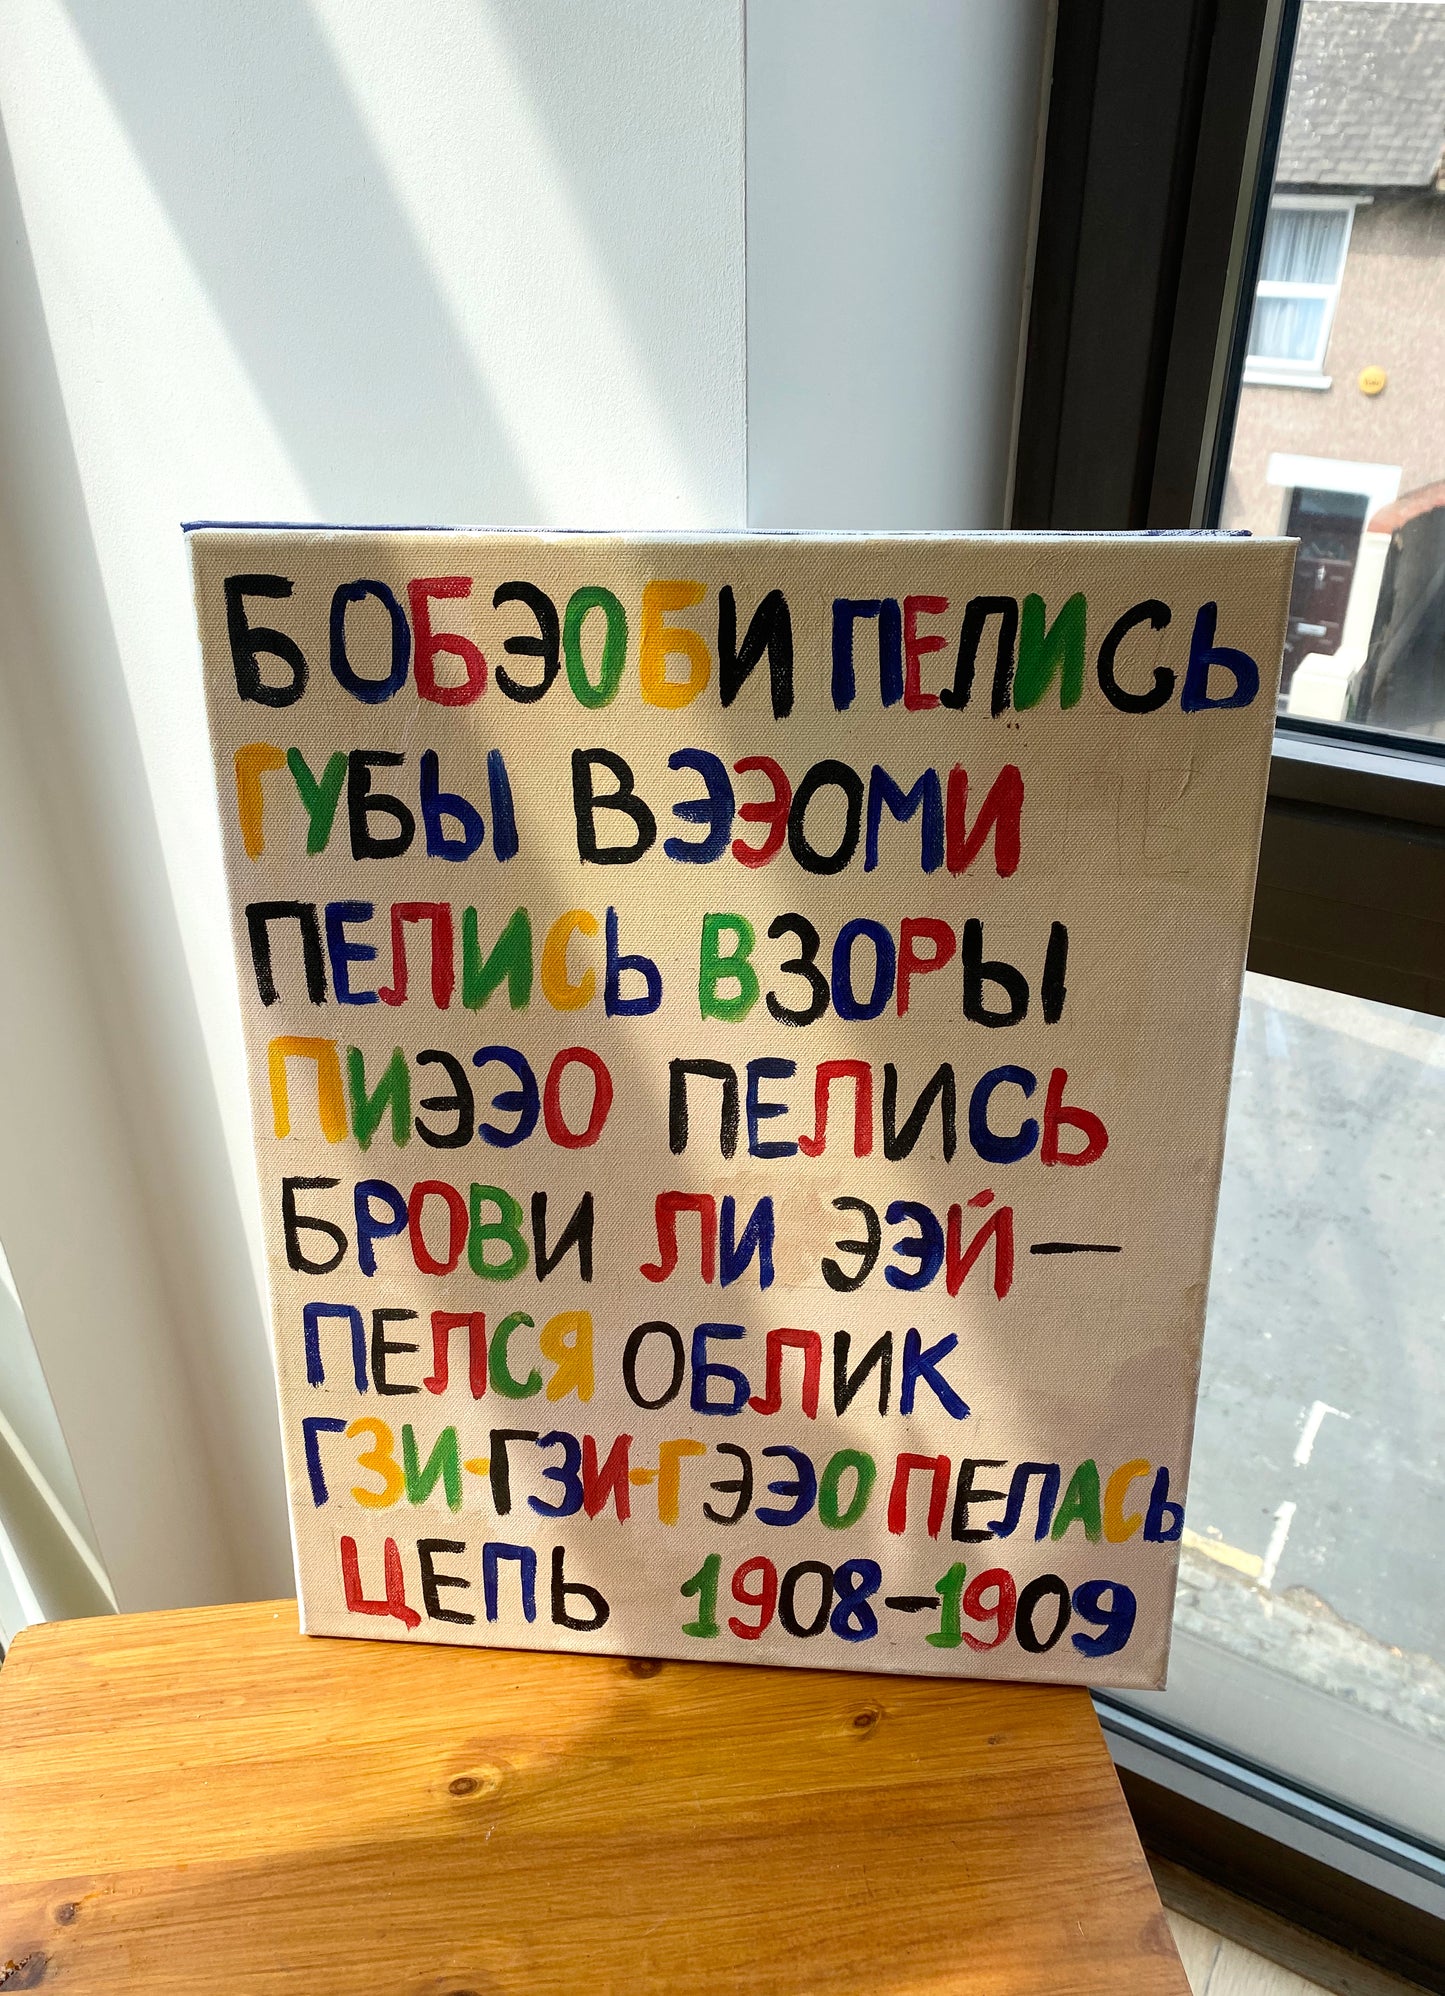 БОБЭОБИ ПЕЛИСЬ
ГУБЫ ВЭЭОМИ
ПЕЛИСЬ ВЗОРЫ
ПИЭЭО ПЕЛИСЬ
БРОВИ ЛИ ЭЭЙ—
ПЕЛСЯ ОБЛИК
ГЗИ-ГЗИ-ГЭЭО ПЕЛАСЬ
ЦЕПЬ 1908–1909